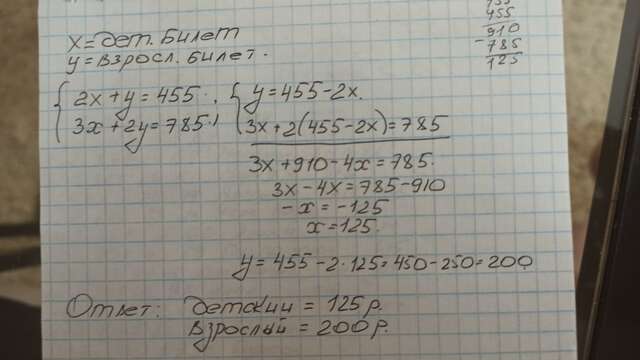 x = дет. билет
y = взросл. билет.
455
455
910
- 785
125
{ 2x + y = 455 ; { y = 455 - 2x.
3x + 2y = 785 ; 3x + 2(455 - 2x) = 785
3x + 910 - 4x = 785.
3x - 4x = 785 - 910
- x = - 125
x = 125.
y = 455 - 2 · 125 = 450 - 250 = 200
Ответ: Детский = 125 р.
Взрослый = 200 р.